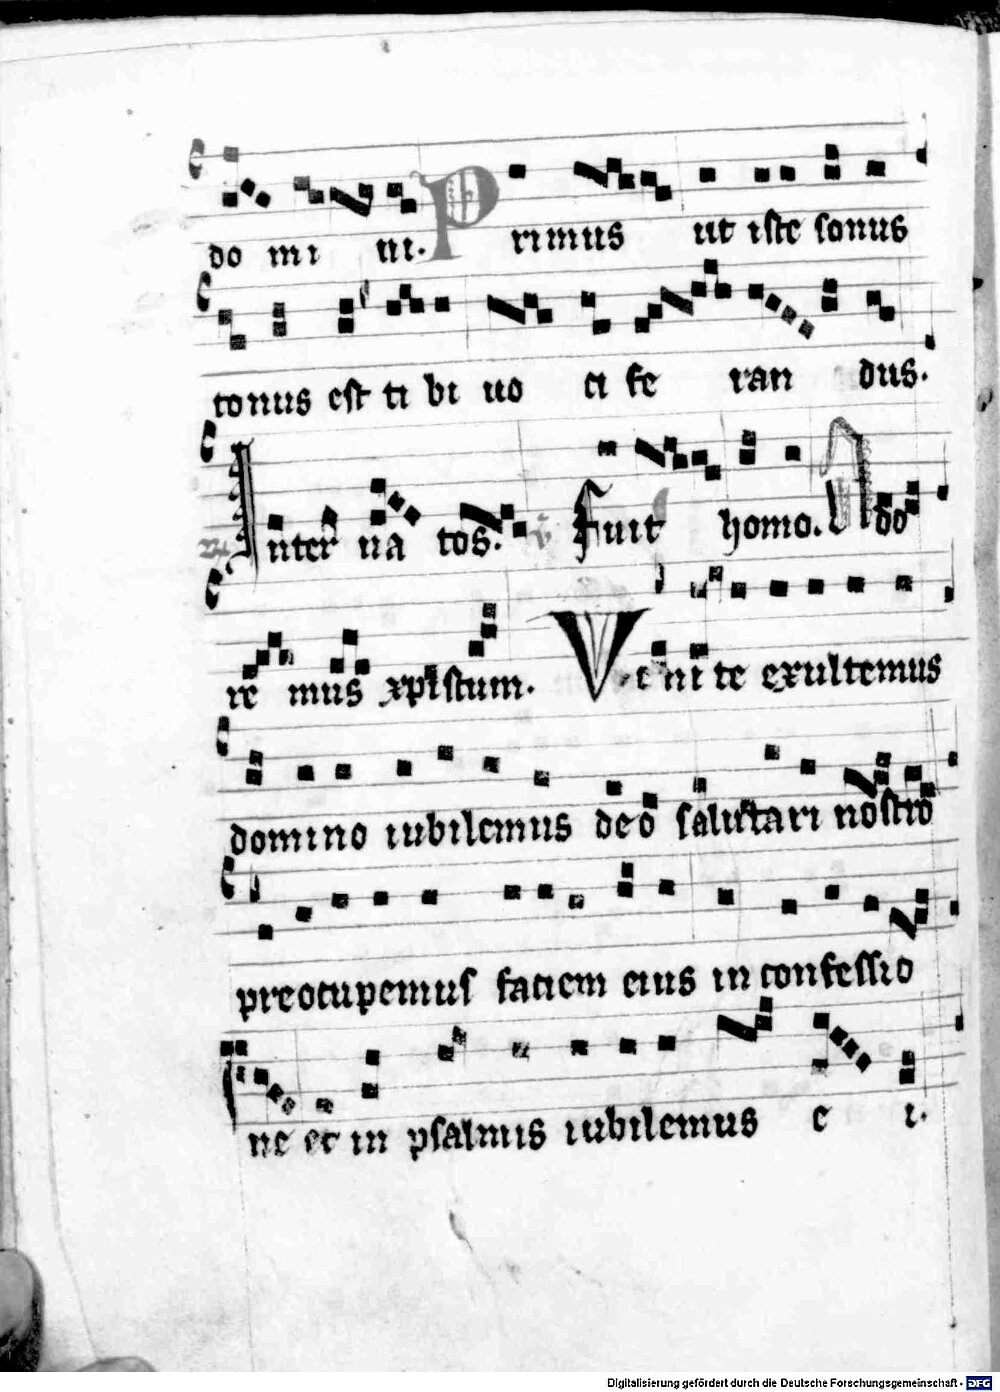 do mi ni. Primus ut iste sonus
tonus est ti bi uo ci fe ran dus.
Inter na tos. Fuit homo. Ado
re mus xpistum. Veni te exultemus
domino iubilemus deo salutari nostro
preocupemus faciem eius in confessio
ne et in psalmis iubilemus e i.
Digitalisierung gefördert durch die Deutsche Forschungsgemeinschaft - DFG